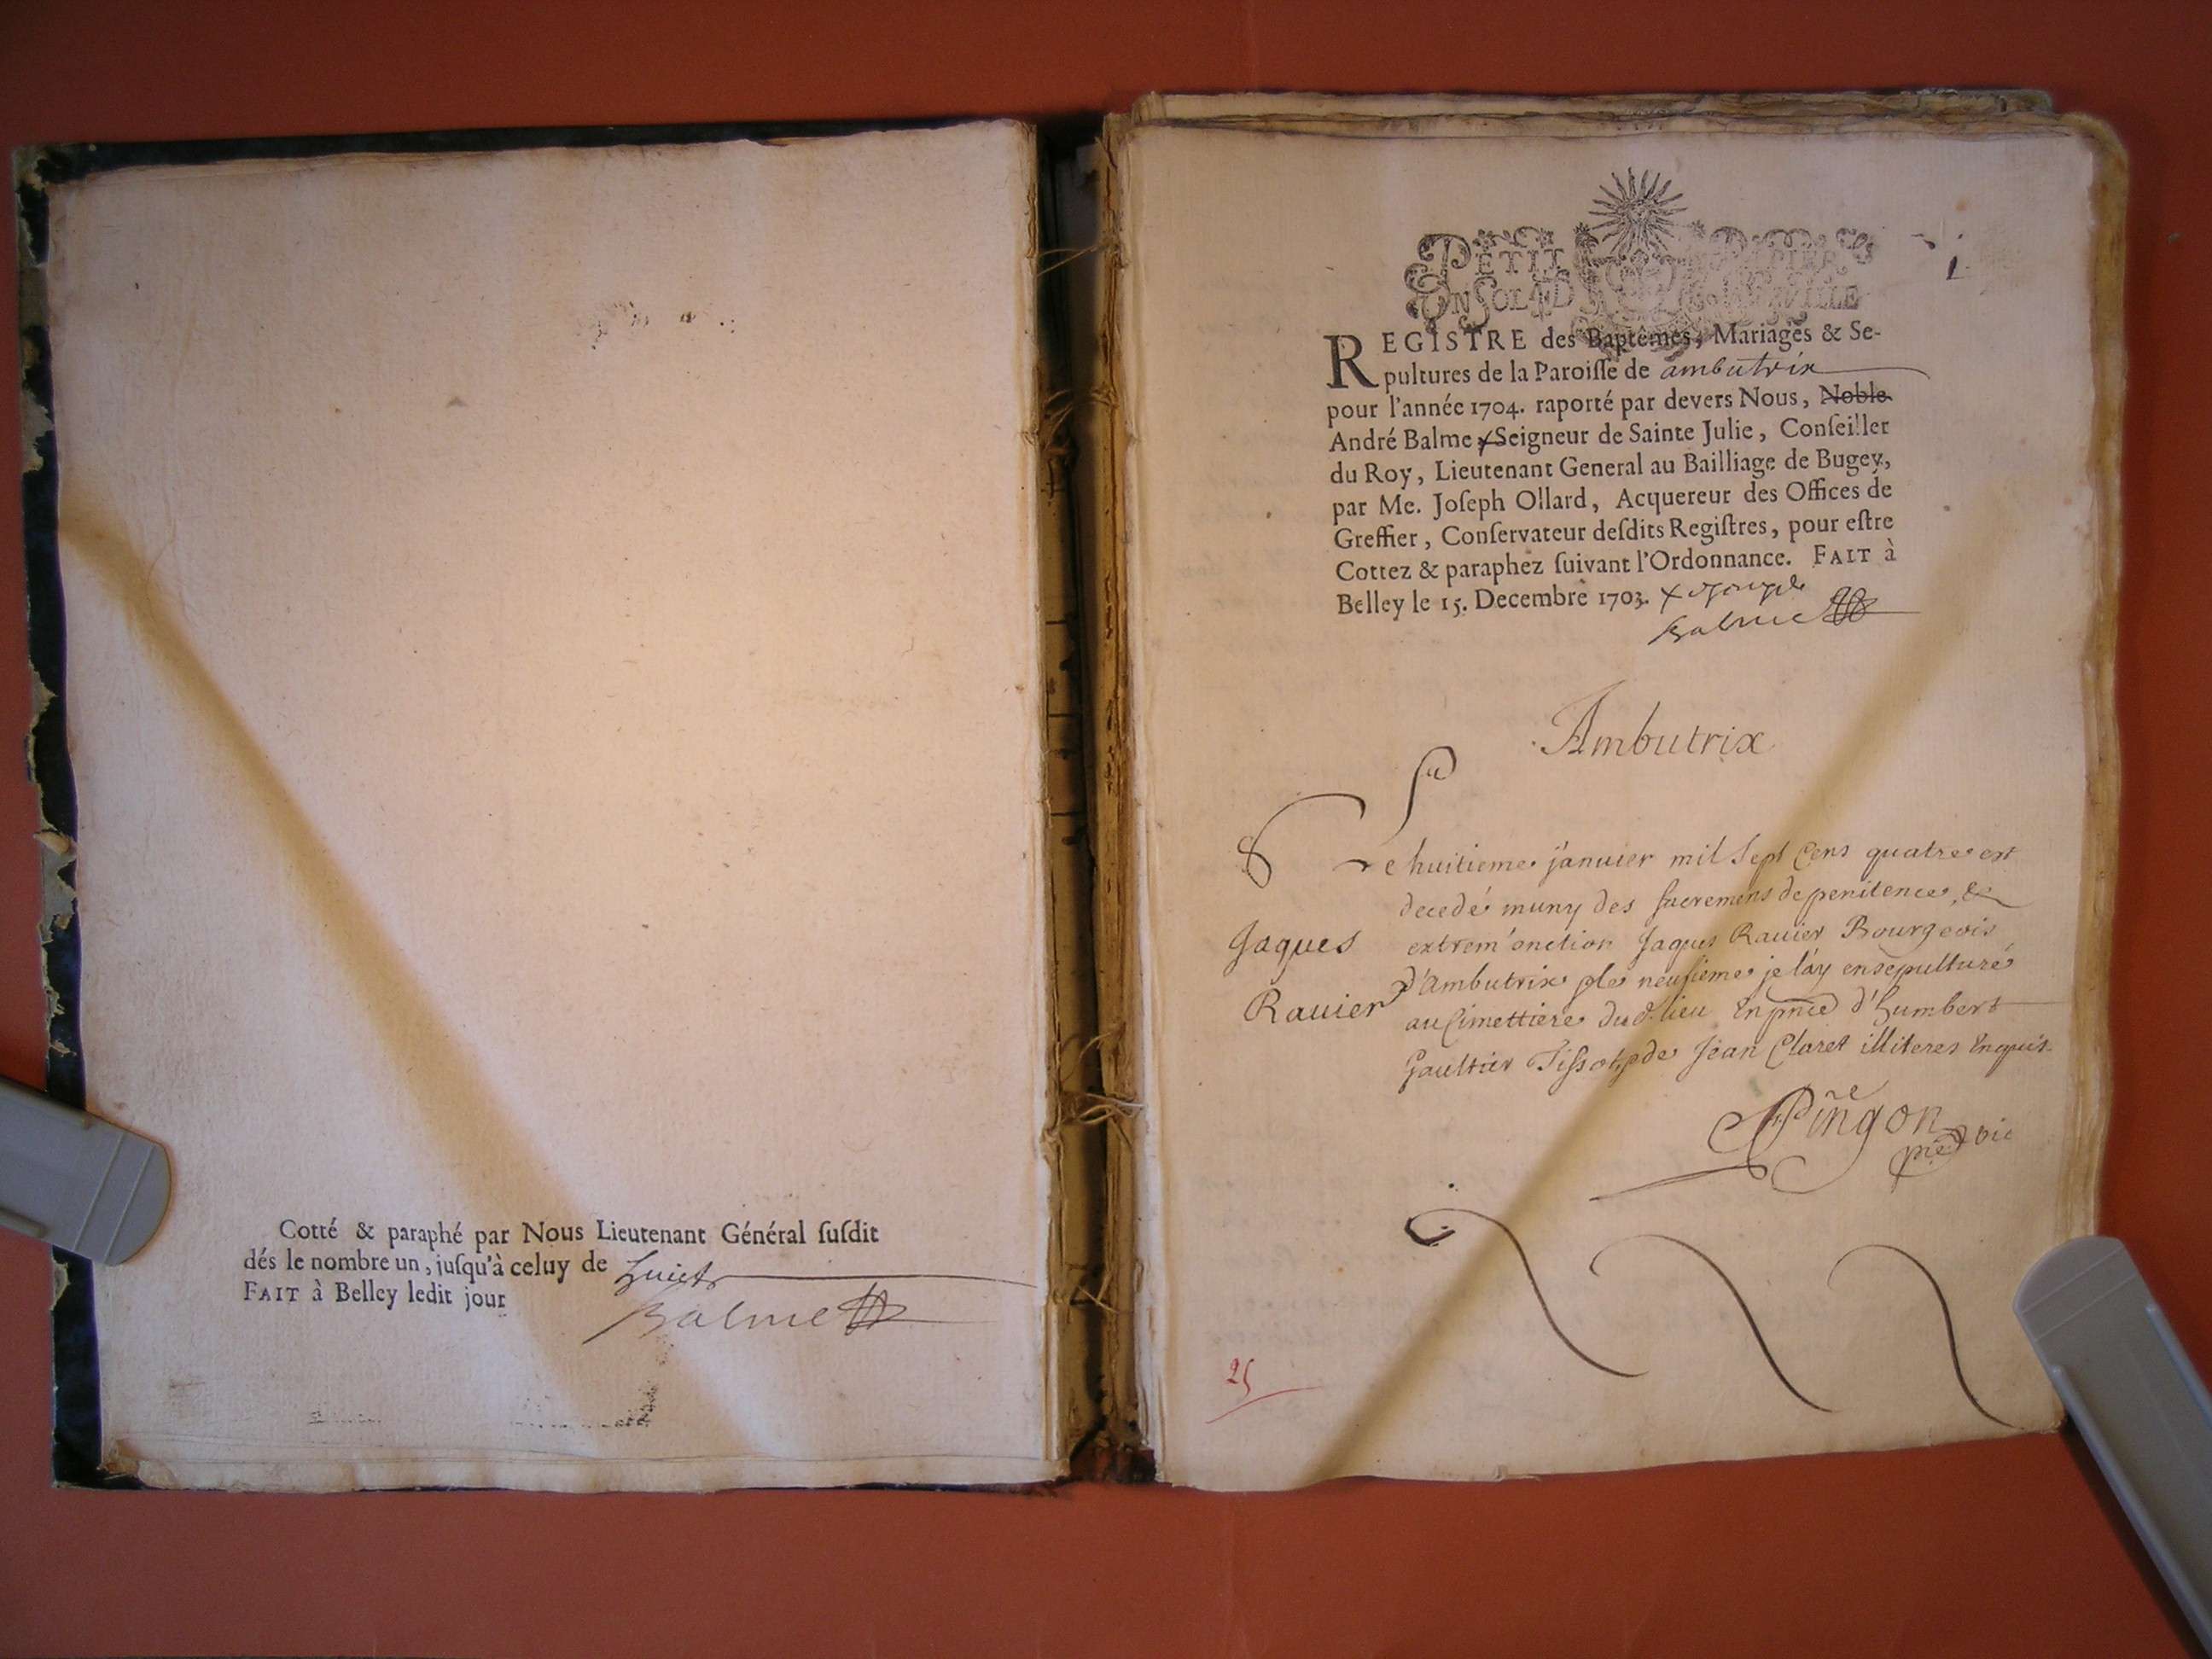 Cotté & paraphé par Nous Lieutenant Général suſdit
dés le nombre un, juſqu'à celuy de huict
FAIT à Belley ledit jour
Balme
PETIT PAPIER
1
REGISTRE des Baptêmes, Mariages & Se-
pultures de la Paroiſſe de ambutrix
pour l'année 1704. raporté par devers Nous, Noble
André Balme Seigneur de Sainte Julie, Conſeiller
du Roy, Lieutenant General au Bailliage de Bugey,
par Me. Joſeph Ollard, Acquereur des Offices de
Greffier, Conſervateur deſdits Regiſtres, pour eſtre
Cottez & paraphez ſuivant l'Ordonnance. FAIT à
Belley le 15. Decembre 1703.
Balme
Ambutrix
Le huitieme januier mil sept cens quatre est
decedé muny des sacremens de penitence, &
Jaques
extrem'onction Jaques Rauier Bourgeois
d'Ambutrix le neufieme je l'ay ensepulturé
Rauier
au Cimettiere du d. lieu En pñce d'humbert
Gaultier Tissot, & de Jean Claret illiteres Enquis.
Pingon
ptre vic
25